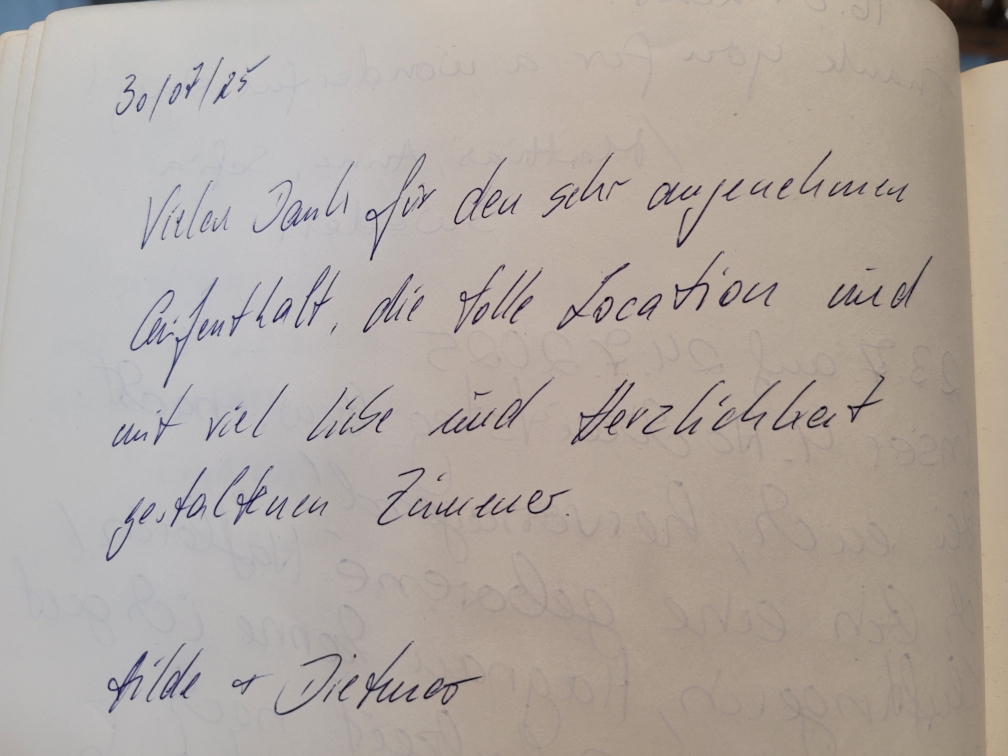 30/07/25
Vielen Dank für den sehr angenehmen
Aufenthalt, die tolle Location und
mit viel Liebe und Herzlichkeit
gestalteten Zimmer.
Hilde + Dietmar